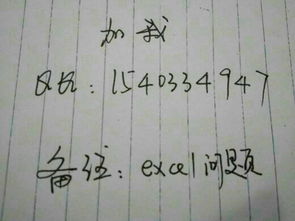 加我
QQ：1540334947
备注：excel问题